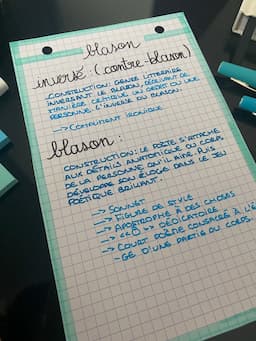 blason
inversé : (contre-blason)
CONSTRUCTION: GENRE LITTÉRAIRE
INVERSANT LE BLASON, DÉCRIVANT DE
MANIÈRE CRITIQUE UN OBJET OU UNE
PERSONNE. L'INVERSE DU BLASON.
→ COMPLIMENT IRONIQUE
blason :
CONSTRUCTION: LE POÈTE S'ATTACHE
AUX DÉTAILS ANATOMIQUE DU CORPS
DE LA PERSONNE QU'IL AIME. PUIS
DÉVELOPPE SON ÉLOGE DANS LE JEU
POÉTIQUE BRILLANT.
→ SONNET
→ FIGURE DE STYLE
→ APOSTROPHE À DES CHOSES
→ «Ô» → DÉDICATOIRE
→ COURT POÈME CONSACRÉ À L'É
-GE D'UNE PARTIE DU CORPS.